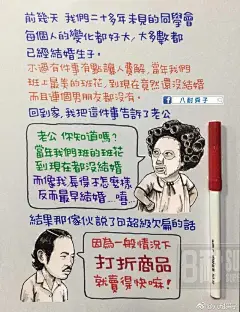 前幾天 我們二十多年未見的同學會
每個人的變化都好大，大多數都
已經結婚生子。
不過有件事有點讓人費解，當年我們
班上最美的班花，到現在竟然還沒結婚
而且連個男朋友都沒有。
回到家，我把這件事告訴了老公
八耐舜子
老公 你知道嗎？
當年我們班的班花
到現在都沒結婚
而像我長得不怎麼樣
反而最早結婚…嘻
結果那傢伙說了句超級欠扁的話
因為一般情況下
打折商品
就賣得快嘛！